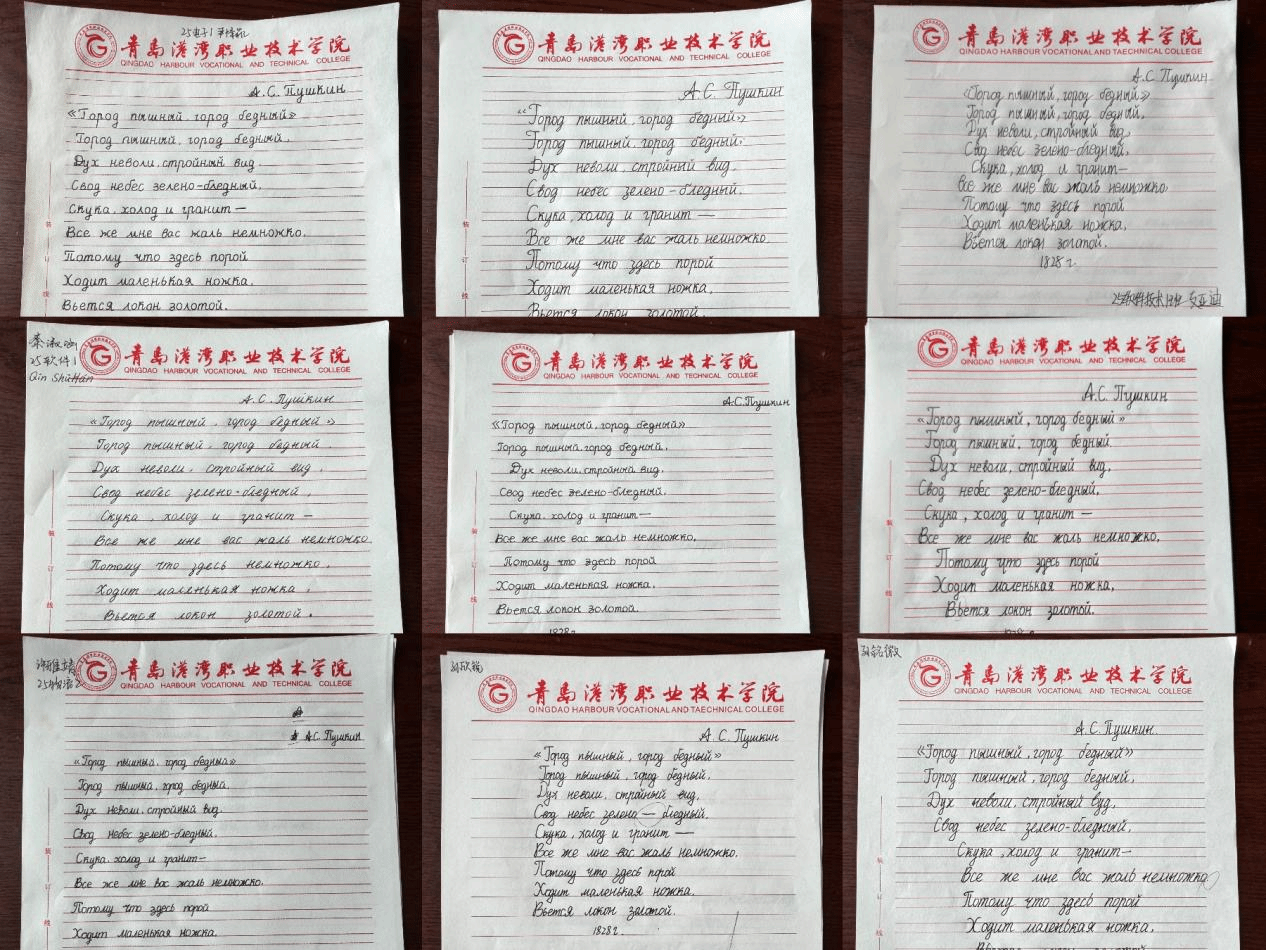 25电子1
青岛港湾职业技术学院
QINGDAO HARBOUR VOCATIONAL AND TECHNICAL COLLEGE
А.С. Пушкин
«Город пышный, город бедный»
Город пышный, город бедный,
Дух неволи, стройный вид
Свод небес зелено-бледный,
Скука, холод и гранит —
Все же мне вас жаль немножко,
Потому что здесь порой
Ходит маленькая ножка,
Вьется локон золотой.
装
订
线
青岛港湾职业技术学院
QINGDAO HARBOUR VOCATIONAL AND TECHNICAL COLLEGE
А.С. Пушкин
“Город пышный, город бедный»
Город пышный, город бедный,
Дух неволи, стройный вид,
Свод небес зелено-бледный,
Скука, холод и гранит —
Все же мне вас жаль немножко,
Потому что здесь порой
Ходит маленькая ножка,
Вьется локон золотой.
装
订
线
青岛港湾职业技术学院
QINGDAO HARBOUR VOCATIONAL AND TAECHNICAL COLLEGE
А.С. Пушкин
«Город пышный, город бедный»
Город пышный, город бедный,
Дух неволи, стройный вид,
Свод небес зелено-бледный,
Скука, холод и гранит—
Все же мне вас жаль немножко
Потому что здесь порой
Ходит маленькая ножка,
Вьется локон золотой.
1828 г.
25软件技术
秦淑涵
25软件1
Qin ShuHan
青岛港湾职业技术学院
QINGDAO HARBOUR VOCATIONAL AND TECHNICAL COLLEGE
А.С. Пушкин
«Город пышный, город бедный»
Город пышный, город бедный
Дух неволи, стройный вид,
Свод небес зелено-бледный,
Скука, холод и гранит —
Все же мне вас жаль немножко
Потому что здесь немножко,
Ходит маленькая ножка,
Вьется локон золотой.
装
订
线
青岛港湾职业技术学院
QINGDAO HARBOUR VOCATIONAL AND TECHNICAL COLLEGE
А.С.Пушкин
«Город пышный, город бедный»
Город пышный, город бедный,
Дух неволи, стройный вид,
Свод небес зелено-бледный,
Скука, холод и гранит—
Все же мне вас жаль немножко,
Потому что здесь порой
Ходит маленькая ножка,
Вьется локон золотой.
1828 г.
装
订
线
青岛港湾职业技术学院
QINGDAO HARBOUR VOCATIONAL AND TECHNICAL COLLEGE
А.С.Пушкин
«Город пышный, город бедный»
Город пышный, город бедный
Дух неволи, стройный вид,
Свод небес зелено-бледный,
Скука, холод и гранит —
Все же мне вас жаль немножко,
Потому что здесь порой
Ходит маленькая ножка,
Вьется локон золотой.
装
订
线
青岛港湾职业技术学院
QINGDAO HARBOUR VOCATIONAL AND TECHNICAL COLLEGE
А.С. Пушкин
«Город пышный, город бедный»
Город пышный, город бедный,
Дух неволи, стройный вид,
Свод небес зелено-бледный,
Скука, холод и гранит—
Все же мне вас жаль немножко,
Потому что здесь порой
Ходит маленькая ножка.
装
订
线
青岛港湾职业技术学院
QINGDAO HARBOUR VOCATIONAL AND TAECHNICAL COLLEGE
А.С. Пушкин
«Город пышный, город бедный»
Город пышный, город бедный,
Дух неволи, стройный вид,
Свод небес зелено — бледный,
Скука, холод и гранит —
Все же мне вас жаль немножко.
Потому что здесь порой
Ходит маленькая ножка.
Вьется локон золотой.
1828 г.
孙铭微
青岛港湾职业技术学院
QINGDAO HARBOUR VOCATIONAL AND TECHNICAL COLLEGE
А.С. Пушкин.
«Город пышный, город бедный»
Город пышный, город бедный,
Дух неволи, стройный вуд,
Свод небес зелено-бледный,
Скука, холод и гранит—
Все же мне вас жаль немножко
Потому что здесь порой
Ходит маленькая ножка,
Вьется локон золотой
装
订
线